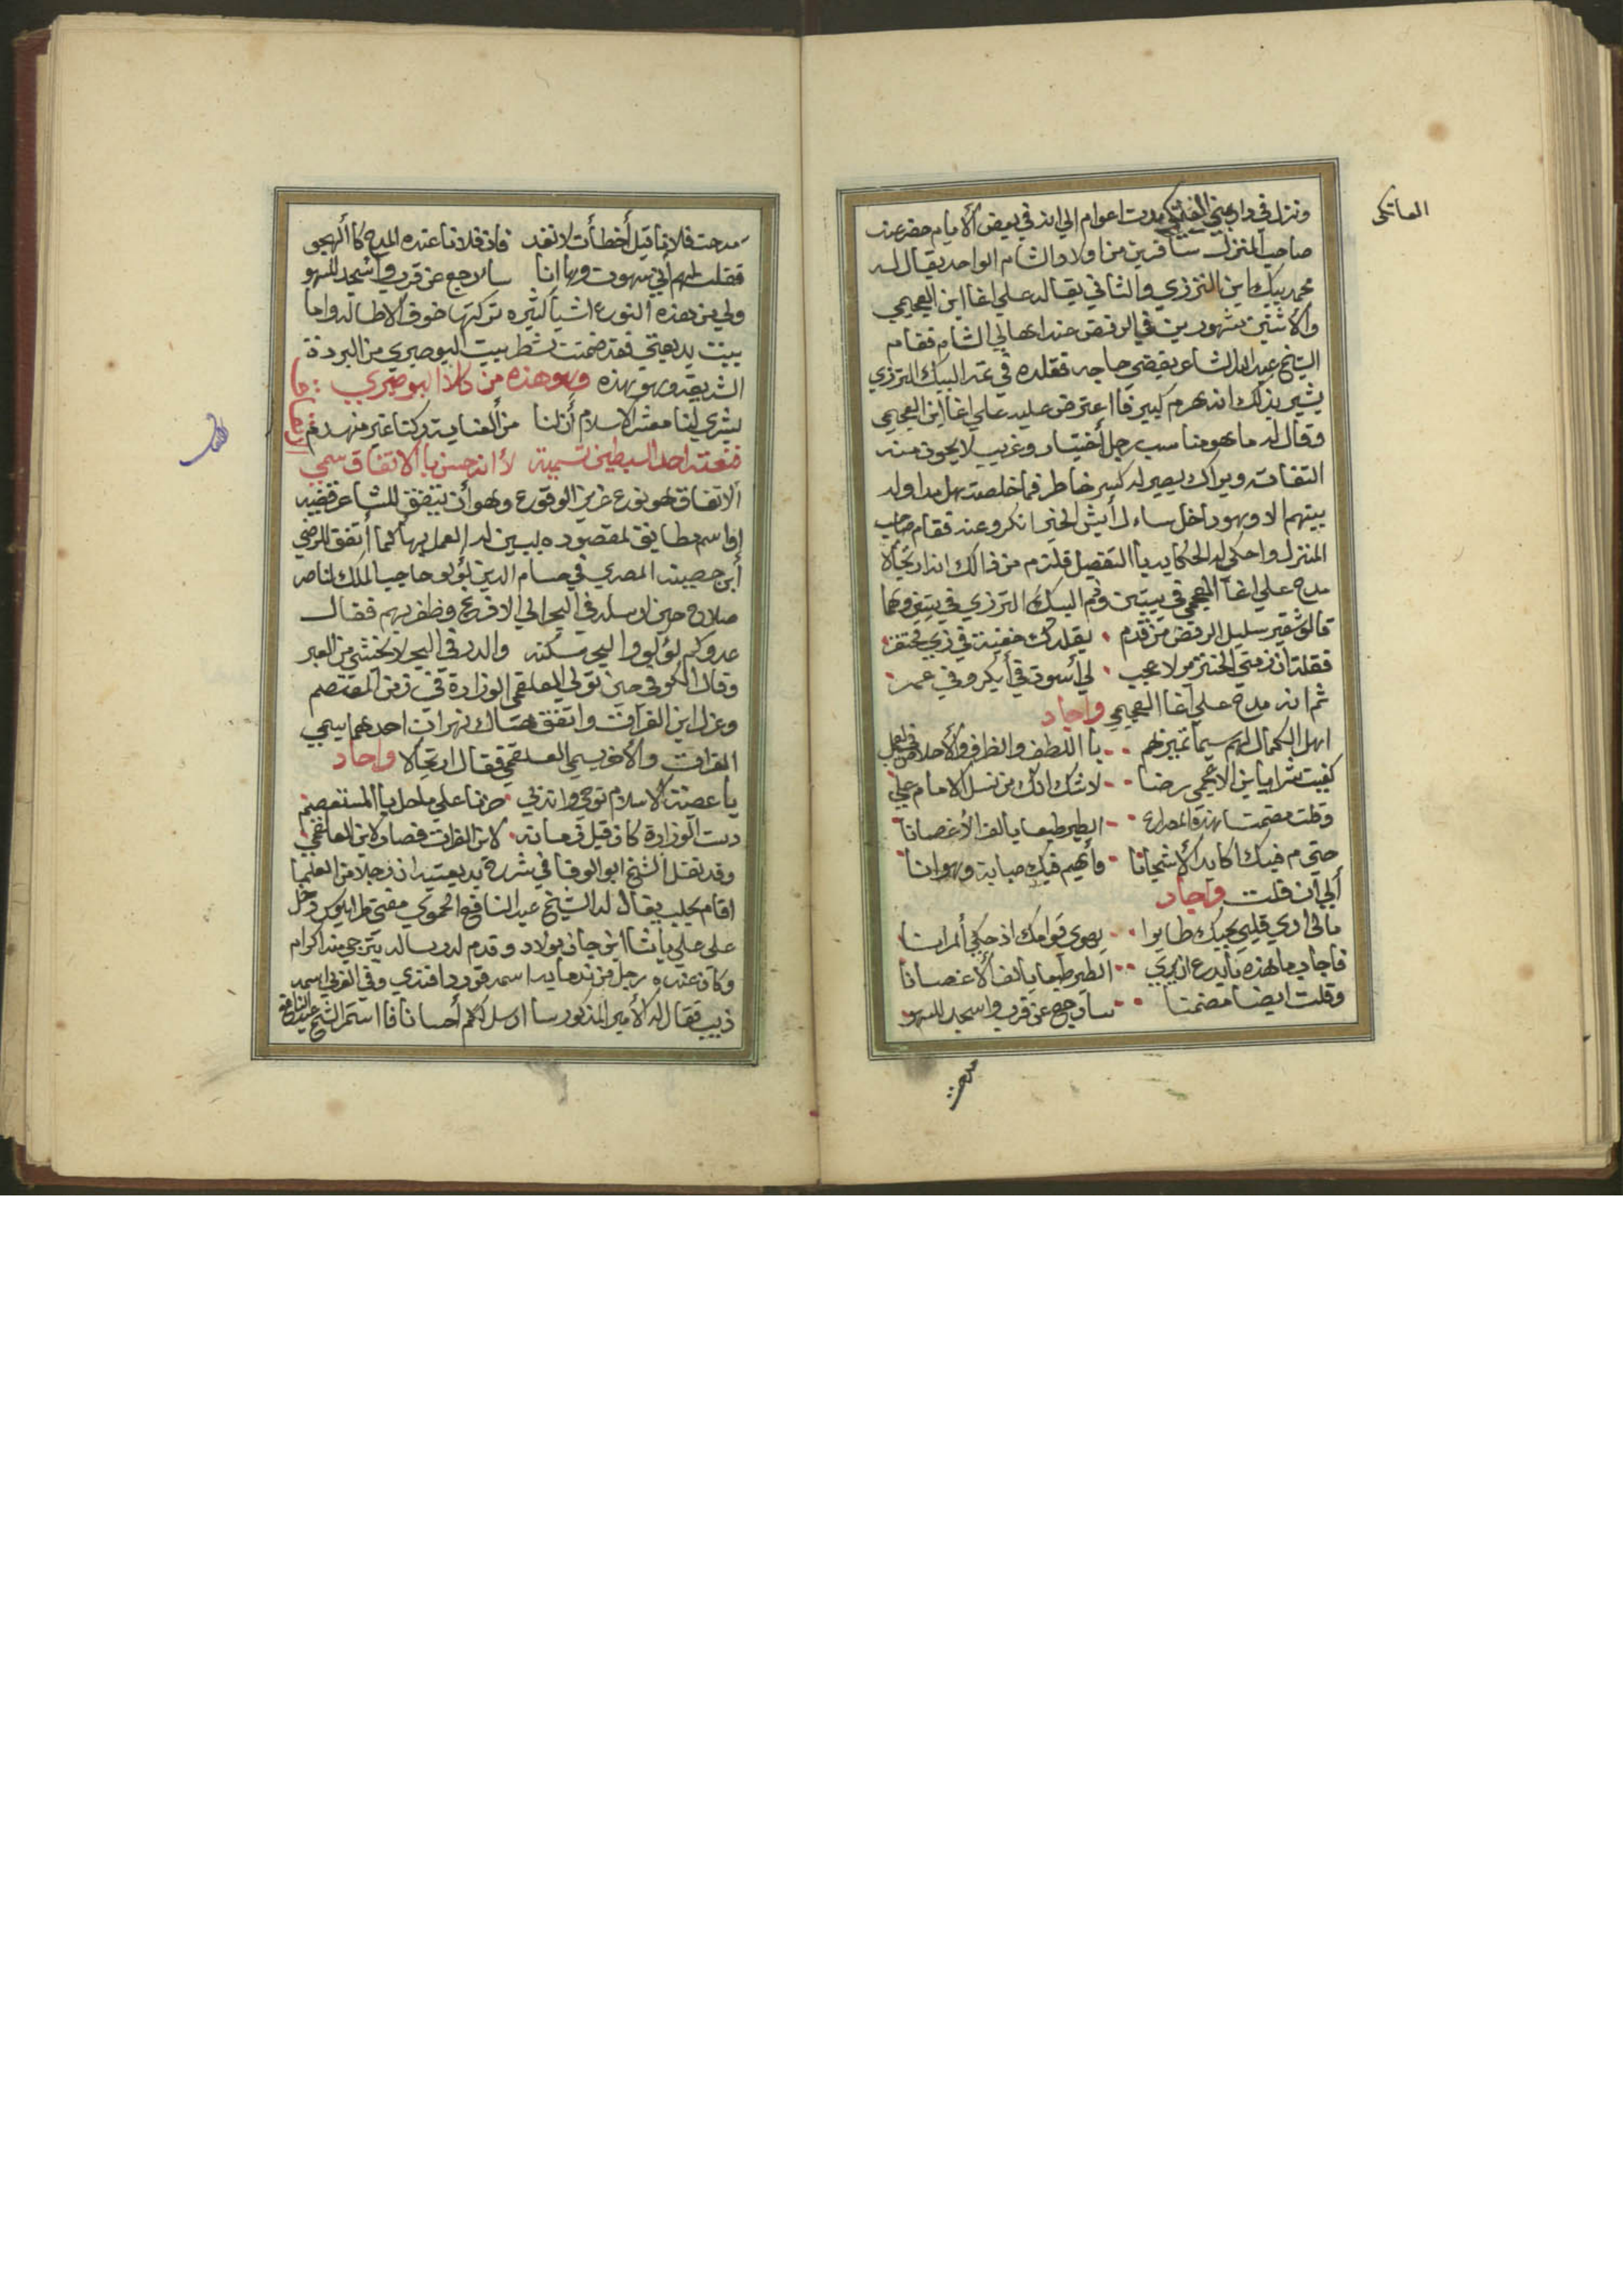 العاتكى
ونزل في دار بني العاتكي مدت اعوام الي انه في بعض الأيام حضر عند
صاحب المنزل مسافرين من اولاد الشام الواحد يقال له
محمد بيك ابن الترزي والثاني يقال له علي اغا ابن العجمي
والأثنين مشهورين في الرفض عند اهالي الشام فقام
الشيخ عبد الله الشاعر يقضي حاجه فقلده في البيك الترزي
يشير بذلك انه هرم كبير فا اعترض عليه علي اغا ابن العجمي
وقال له ما هو مناسب رجل أختيار وغريب لا يجوز منه
التفات ويراك يصير له كسر خاطر فما خلصت بهل مداوله
بينهم الا وهو داخل ساءل أيش الخبر انكروعنه فقام صاحب
المنزل واحكي له الحكايه باالتفصيل فلتزم من ذالك انه ارتجالا
مدح علي اغا العجمي في بيتين وذم البيك الترزي في بيتين وهما
قالو شقير سليل الرفض من قدم يقلدك خفية في زي محتقر
فقلت ان ذمني الخنزير لا عجب لي أسوة في أبي بكر وفي عمر
ثم انه مدح علي اغا العجمي واجاد
اهل الكمال لهم سيما تميزهم باا اللطف والظرف والأخلاص في العمل
كفيت شرا يا ابن الاعجمي رضا لا شك انك من نسل الامام علي
وقلت مضمنا بهذه المصراع الطير طبعا يألف الأغصانا
حتى م فيك اكابد الأشجانا وأهيم فيك صبابة وهوانا
ألي ان قلت واجاد
مالى اري قلبي بحبك طايرا يهوى قوامك اذ حكى ألمرانا
فاجاد ما هذه بأبدع ان يري الطير طبعا يالف الأغصانا
وقلت ايضا مضمنا سارجع عن قرب واسجد للسهو
مدحت
مدحت فلانا قيل أخطأت لا تعد فان فلانا عنده المدح كا ألهجو
فقلت لهم أني سهوت وها انا سارجع عن قرب وأسجد للسهو
ولي من هذه النوع اشيأ كثيره تركتها خوف الاطاله واما
بيت بديعتي فقد ضمنت شطر بيت البوصيري من البردة
الشريفه وهو بهذه وهو هذه من كلام البوصيري
بشري لنا معشر الاسلام أن لنا من العناية ركنا غير منهدم
فنعته احد السبطين تسمية لأنه حسن باالاتفاق سمي
الاتفاق هو نوع عزيز الوقوع وهو أن يتفق للشاعر قضيه
او اسم مطابق لمقصوده يبين له العمل بها كما أتفق للرضي
أبن حصينه المصري في حسام الدين لؤلؤ حاجب الملك الناصر
صلاح حين ارسله في البحر الي الافرنج وظفر بهم فقال
عدوكم لؤلؤ والبحر مسكنه والدر في البحر لا يخشى من الغير
وقال الكوفي حين تولي العلقمي الوزارة في زمن المعتصم
وعزل ابن الفرات واتفق هناك نهران احدهما يسمي
الفرات والاخر يسمي العلقمي فقال ارتجالا واجاد
يا عصبة الاسلام نوحي واندبي حزنا علي ما حل باالمستعصم
دست الوزارة كان قبل زمانه لابن الفرات فصار لابن العلقمي
وقد نقل الشيخ ابو الوفا في شرح بديعيته ان رجلا من العلما
اقام بحلب يقال له الشيخ عبد النافع الحموي مفتي طرابلوس دخل
على علي باشا ابن جان بولاد وقدم له رساله يترجي منه اكرام
وكان عنده رجل من ندمايه اسمه قورد افندي وفي العربي اسمه
ذيب فقال له الأمير المذكور سا ارسل لكم أحسانا فا استمر الشيخ عبد النافع